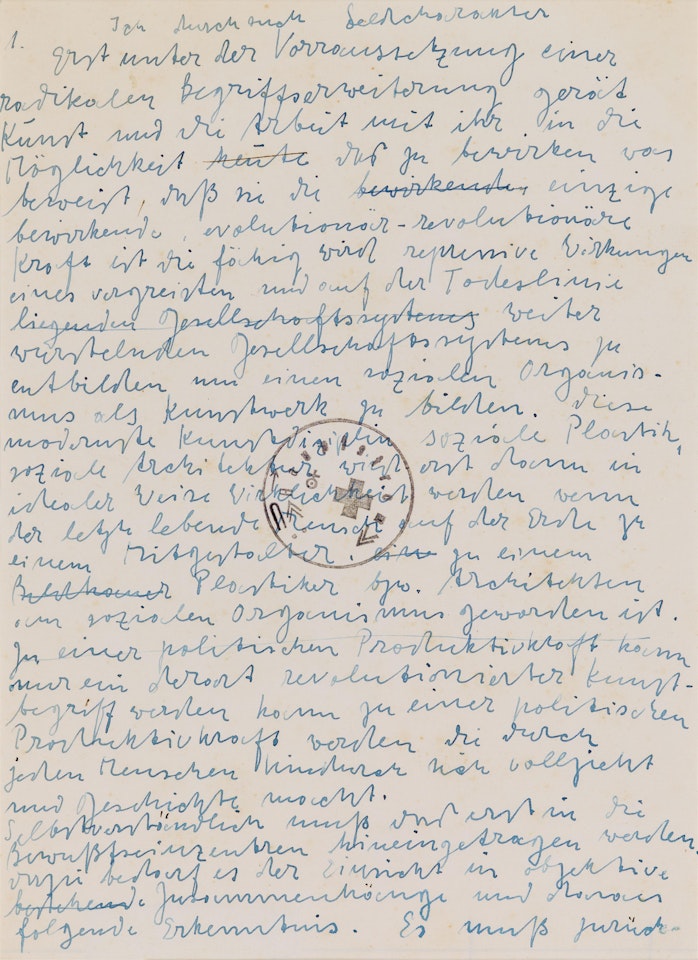 1. Ich durchsuch Feldcharakter
Erst unter der Vorraussetzung einer
radikalen Begriffserweiterung gerät
Kunst und die Arbeit mit ihr in die
Möglichkeit heute das zu bewirken was
beweist, daß sie die bewirkende, einzige
bewirkende, evolutionär-revolutionäre
Kraft ist die fähig wird repressive Wirkungen
eines vergreisten und auf der Todeslinie
liegenden Gesellschaftssystems weiter
wurstelnden Gesellschaftssystems zu
entbilden um einen sozialen Organis-
mus als Kunstwerk zu bilden. diese
modernste Kunstdisziplin soziale Plastik,
soziale Architektur wird erst dann in
idealer Weise Wirklichkeit werden wenn
der letzte lebende Mensch auf der Erde zu
einem Mitgestalter, ein zu einem
Bildhauer Plastiker bzw. Architekten
am sozialen Organismus geworden ist.
zu einer politischen Produktivkraft kann
nur ein derart revolutionierter Kunst-
begriff werden kann zu einer politischen
Produktivkraft werden die durch
jeden Menschen hindurch sich vollzieht
und Geschichte macht.
Selbstverständlich muß das erst in die
Bewußtseinzentren hineingetragen werden,
dazu bedarf es der Einsicht in objektive
bestehende Zusammenhänge und daraus
folgende Erkenntnis. Es muß zurück-